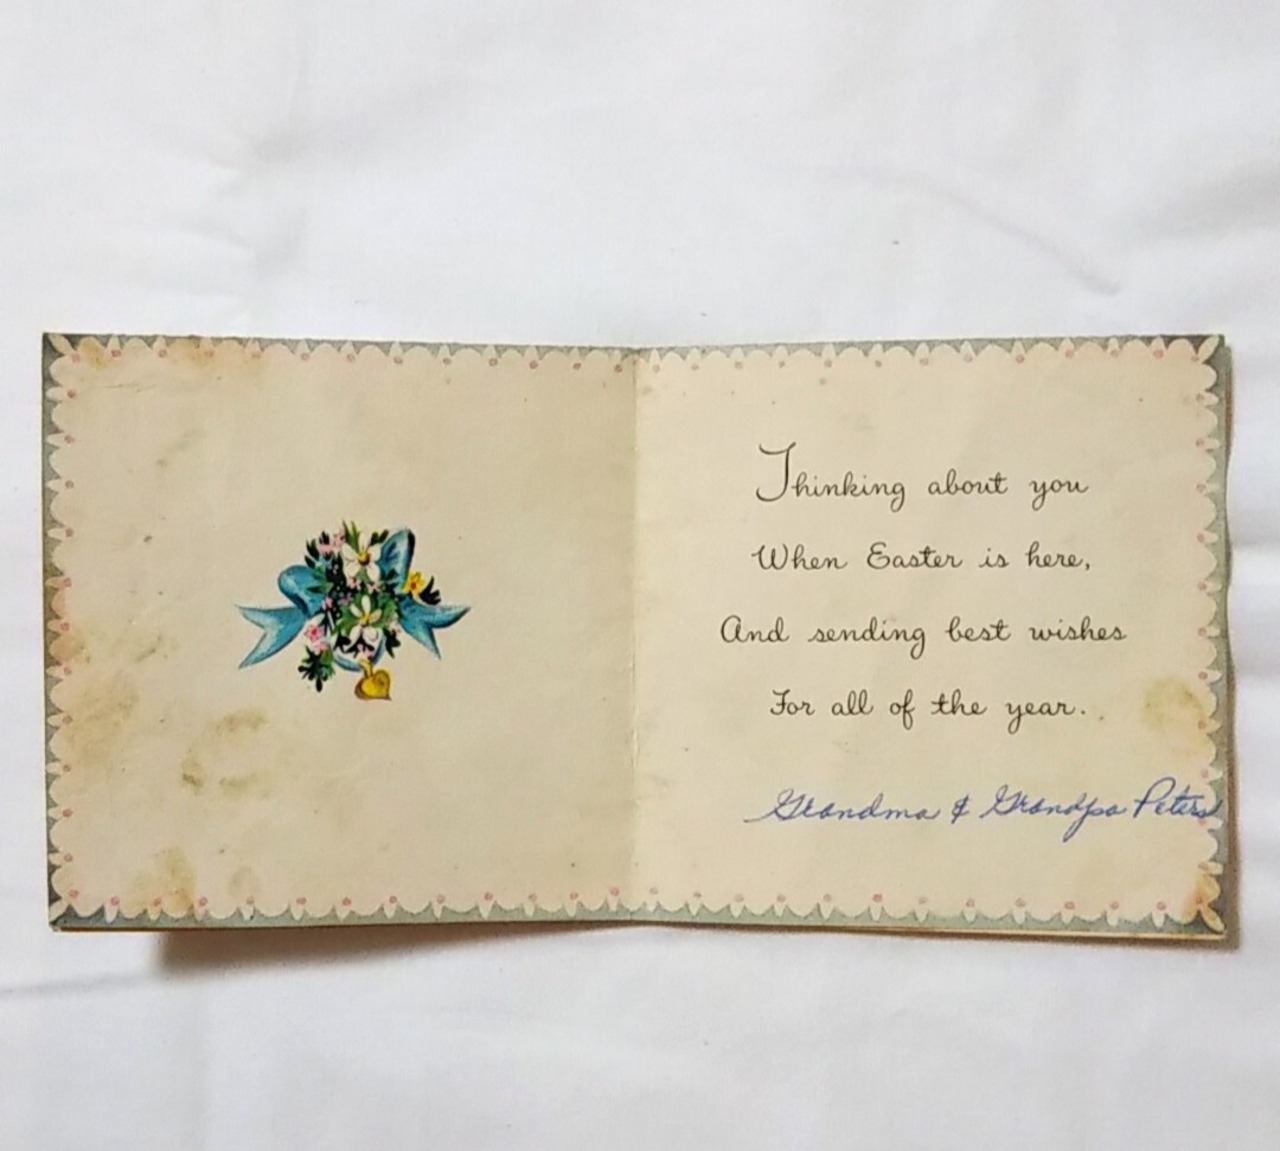 Thinking about you
When Easter is here,
And sending best wishes
For all of the year.
Grandma & Grandpa Peters